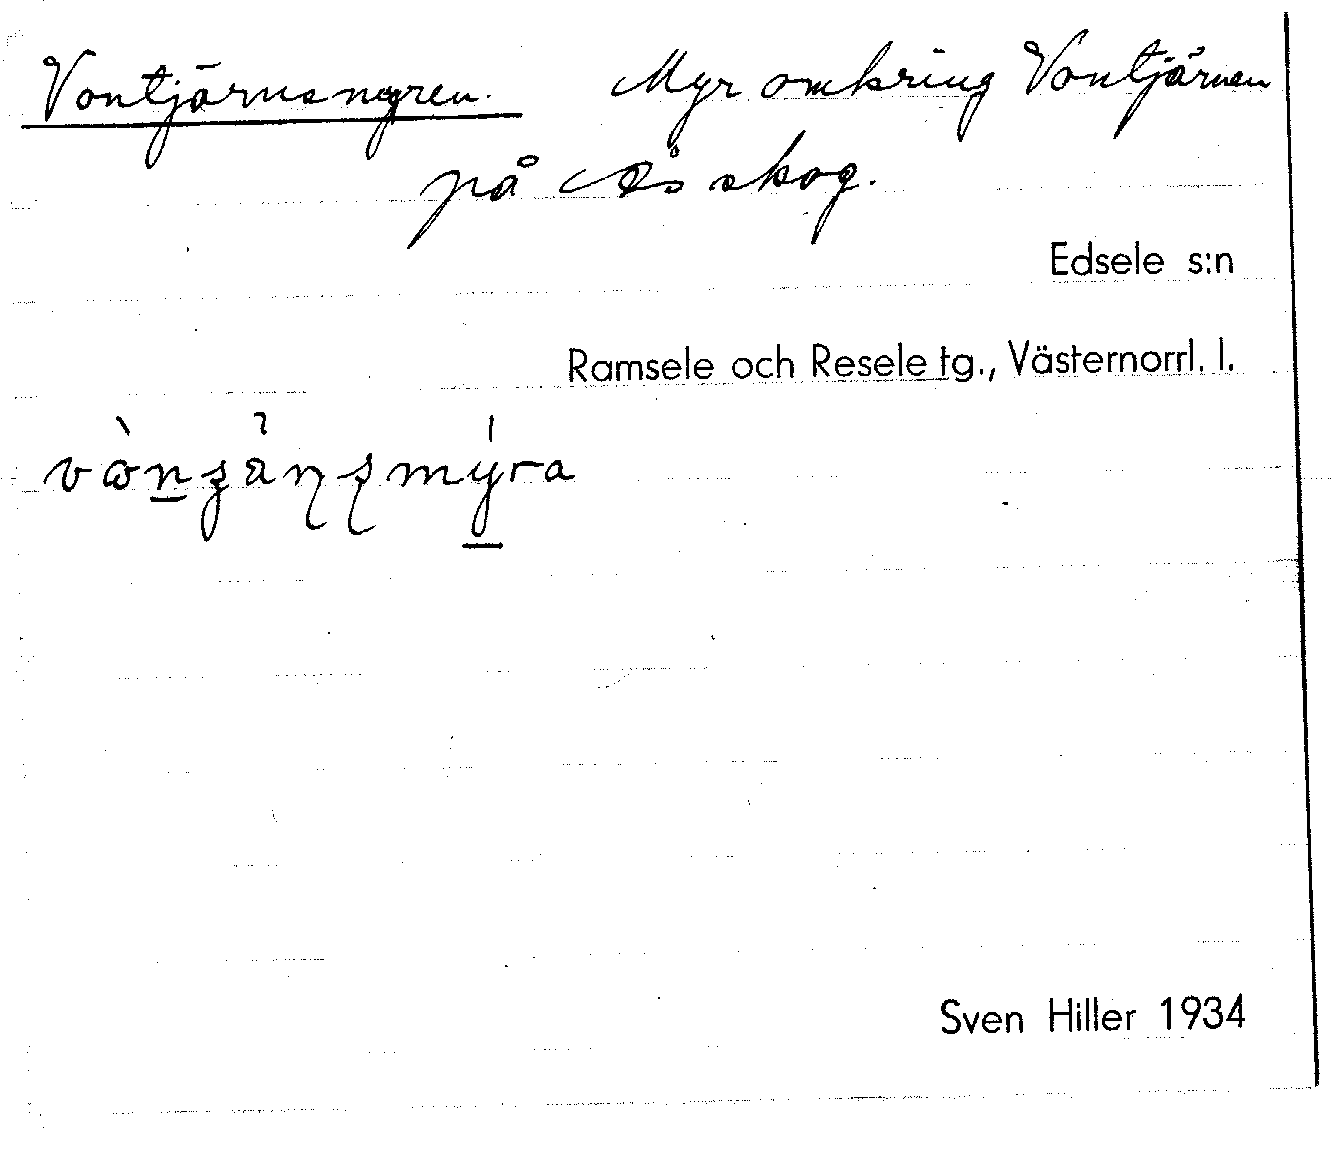 Vontjärnsmyren. Myr omkring Vontjärnen
på Ås skog.
Edsele s:n
Ramsele och Resele tg., Västernorrl. l.
Sven Hiller 1934